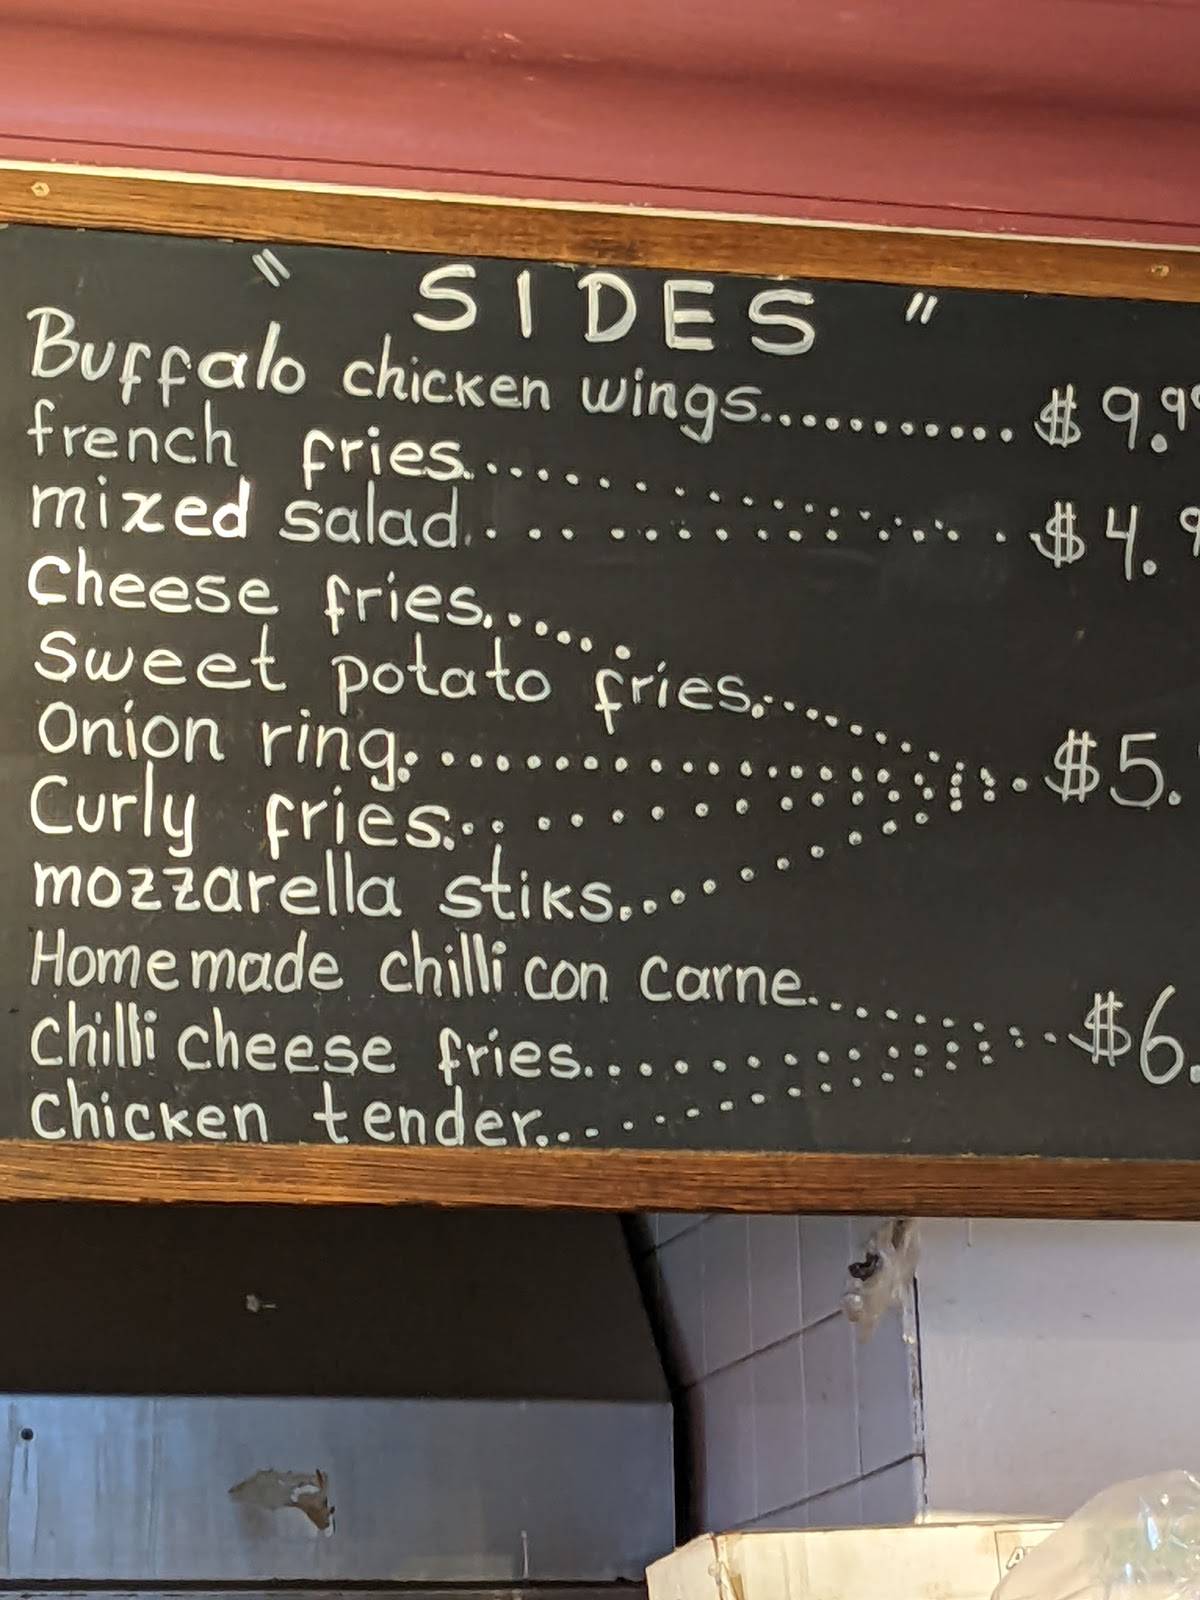 " SIDES "
Buffalo chicken wings............ $9.99
french fries..............
mixed salad.............. $4.9
Cheese fries.......
Sweet potato fries..........
Onion ring.................... $5.
Curly fries.................
mozzarella stiks...........
Homemade chilli con carne..........
Chilli cheese fries................ $6.
Chicken tender................